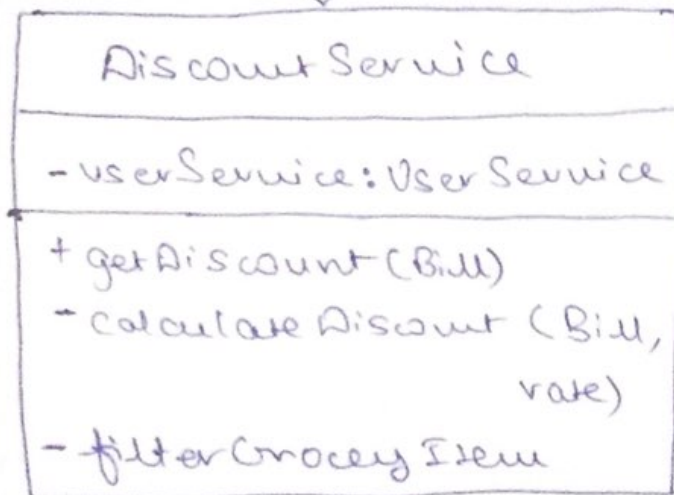 DiscountService
- userService: UserService
+ getDiscount (Bill)
- calculateDiscount (Bill,
rate)
- filterGroceyItem